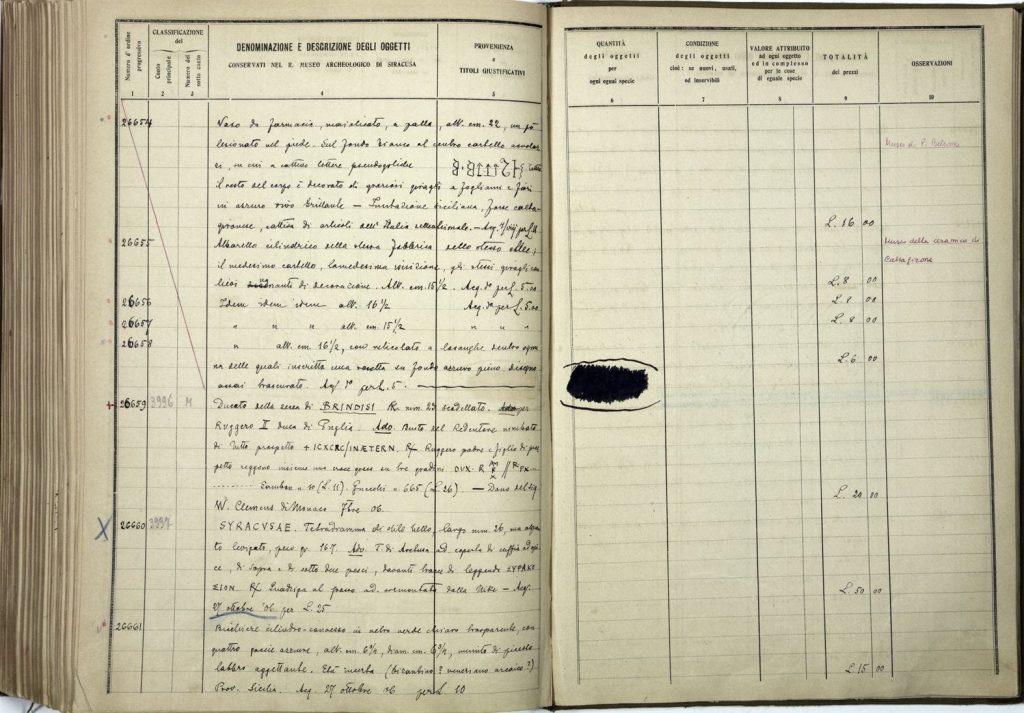 Numero d'ordine progressivo
CLASSIFICAZIONE del
Conto principale
Numero del sotto conto
DENOMINAZIONE E DESCRIZIONE DEGLI OGGETTI
CONSERVATI NEL R. MUSEO ARCHEOLOGICO DI SIRACUSA
PROVENIENZA
e
TITOLI GIUSTIFICATIVI
1 2 3 4 5
26654 Vaso da farmacia, maiolicato, a palla, alt. cm. 22, un po'
lesionato nel piede. Sul fondo bianco al centro cartello
ci, in cui a cattive lettere pseudogotiche
il resto del corpo è decorato di graziosi giragli a fogliami e fiori
in azzurro vivo brillante — Imitazione siciliana, forse calta-
gironese, cattiva di articoli dell'Italia settentrionale. — Acq.
26655 Albarello cilindrico della stessa fabbrica dello stesso
il medesimo cartello, la medesima iscrizione, gli stessi giragli
di decorazione. Alt. cm. 15 1/2. Acq. dº per L. 5.00
26656 Idem idem idem alt. 16 1/2 Acq. dº per L. 5.00
26657 " " " alt. cm. 15 1/2 " " "
26658 " alt. cm. 16 1/2, con reticolato a losanghe dentro ognu-
na delle quali inscritta una rosetta su fondo azzurro pieno disegno
assai trascurato. Acq. dº per L. 5. —
26659 3996 M Ducato della zecca di BRINDISI R. mm. 25 scodellato. per
Ruggero II duca di Puglia. Ado. Busto del Redentore nimbato
di tutto prospetto + ICXCRC/INÆTERN. R/ Ruggero padre e figlio di pro-
spetto reggono insieme una croce su tre gradini DVX. R
Sambon n 10 (L. 11). n 665 (L. 26) — Dono del Sig.
W. Clemens di Monaco 7bre 06.
26660 3997 SYRACVSAE. Tetradramma di stile bello, largo mm. 26, ma
to levigato, peso gr. 16.7. Ado T. di Aretusa ad. coperta di cuffia
ce, di sopra e di sotto due pesci, davanti tracce di leggenda ΣΥΡΑΚΟ
ΣΙΟΝ R/ Quadriga al passo ad. sormontata dalla Nike — Acq.
27 ottobre '06 per L. 25
26661 Bicchiere cilindro-convesso in vetro verde chiaro trasparente, con
quattro azzurre, alt. cm. 6 1/2, diam. cm. 6 1/2, munito di piccolo
labbro aggettante. Età incerta (bizantino? veneziano arcaico?)
Prov. Sicilia. Acq. 27 ottobre 06 per L. 10
QUANTITÀ
degli oggetti
per
ogni ogual specie
CONDIZIONE
degli oggetti
cioè: se nuovi, usati,
od inservibili
VALORE ATTRIBUITO
ad ogni oggetto
ed in complesso
per le cose
di eguale specie
TOTALITÀ
dei prezzi
OSSERVAZIONI
6 7 8 9 10
Museo di P. Bellomo
L. 16 00
Museo della ceramica di
Caltagirone
L. 8 00
L. 8 00
L. 8 00
L. 6 00
L. 20 00
L. 50 00
L. 15 00